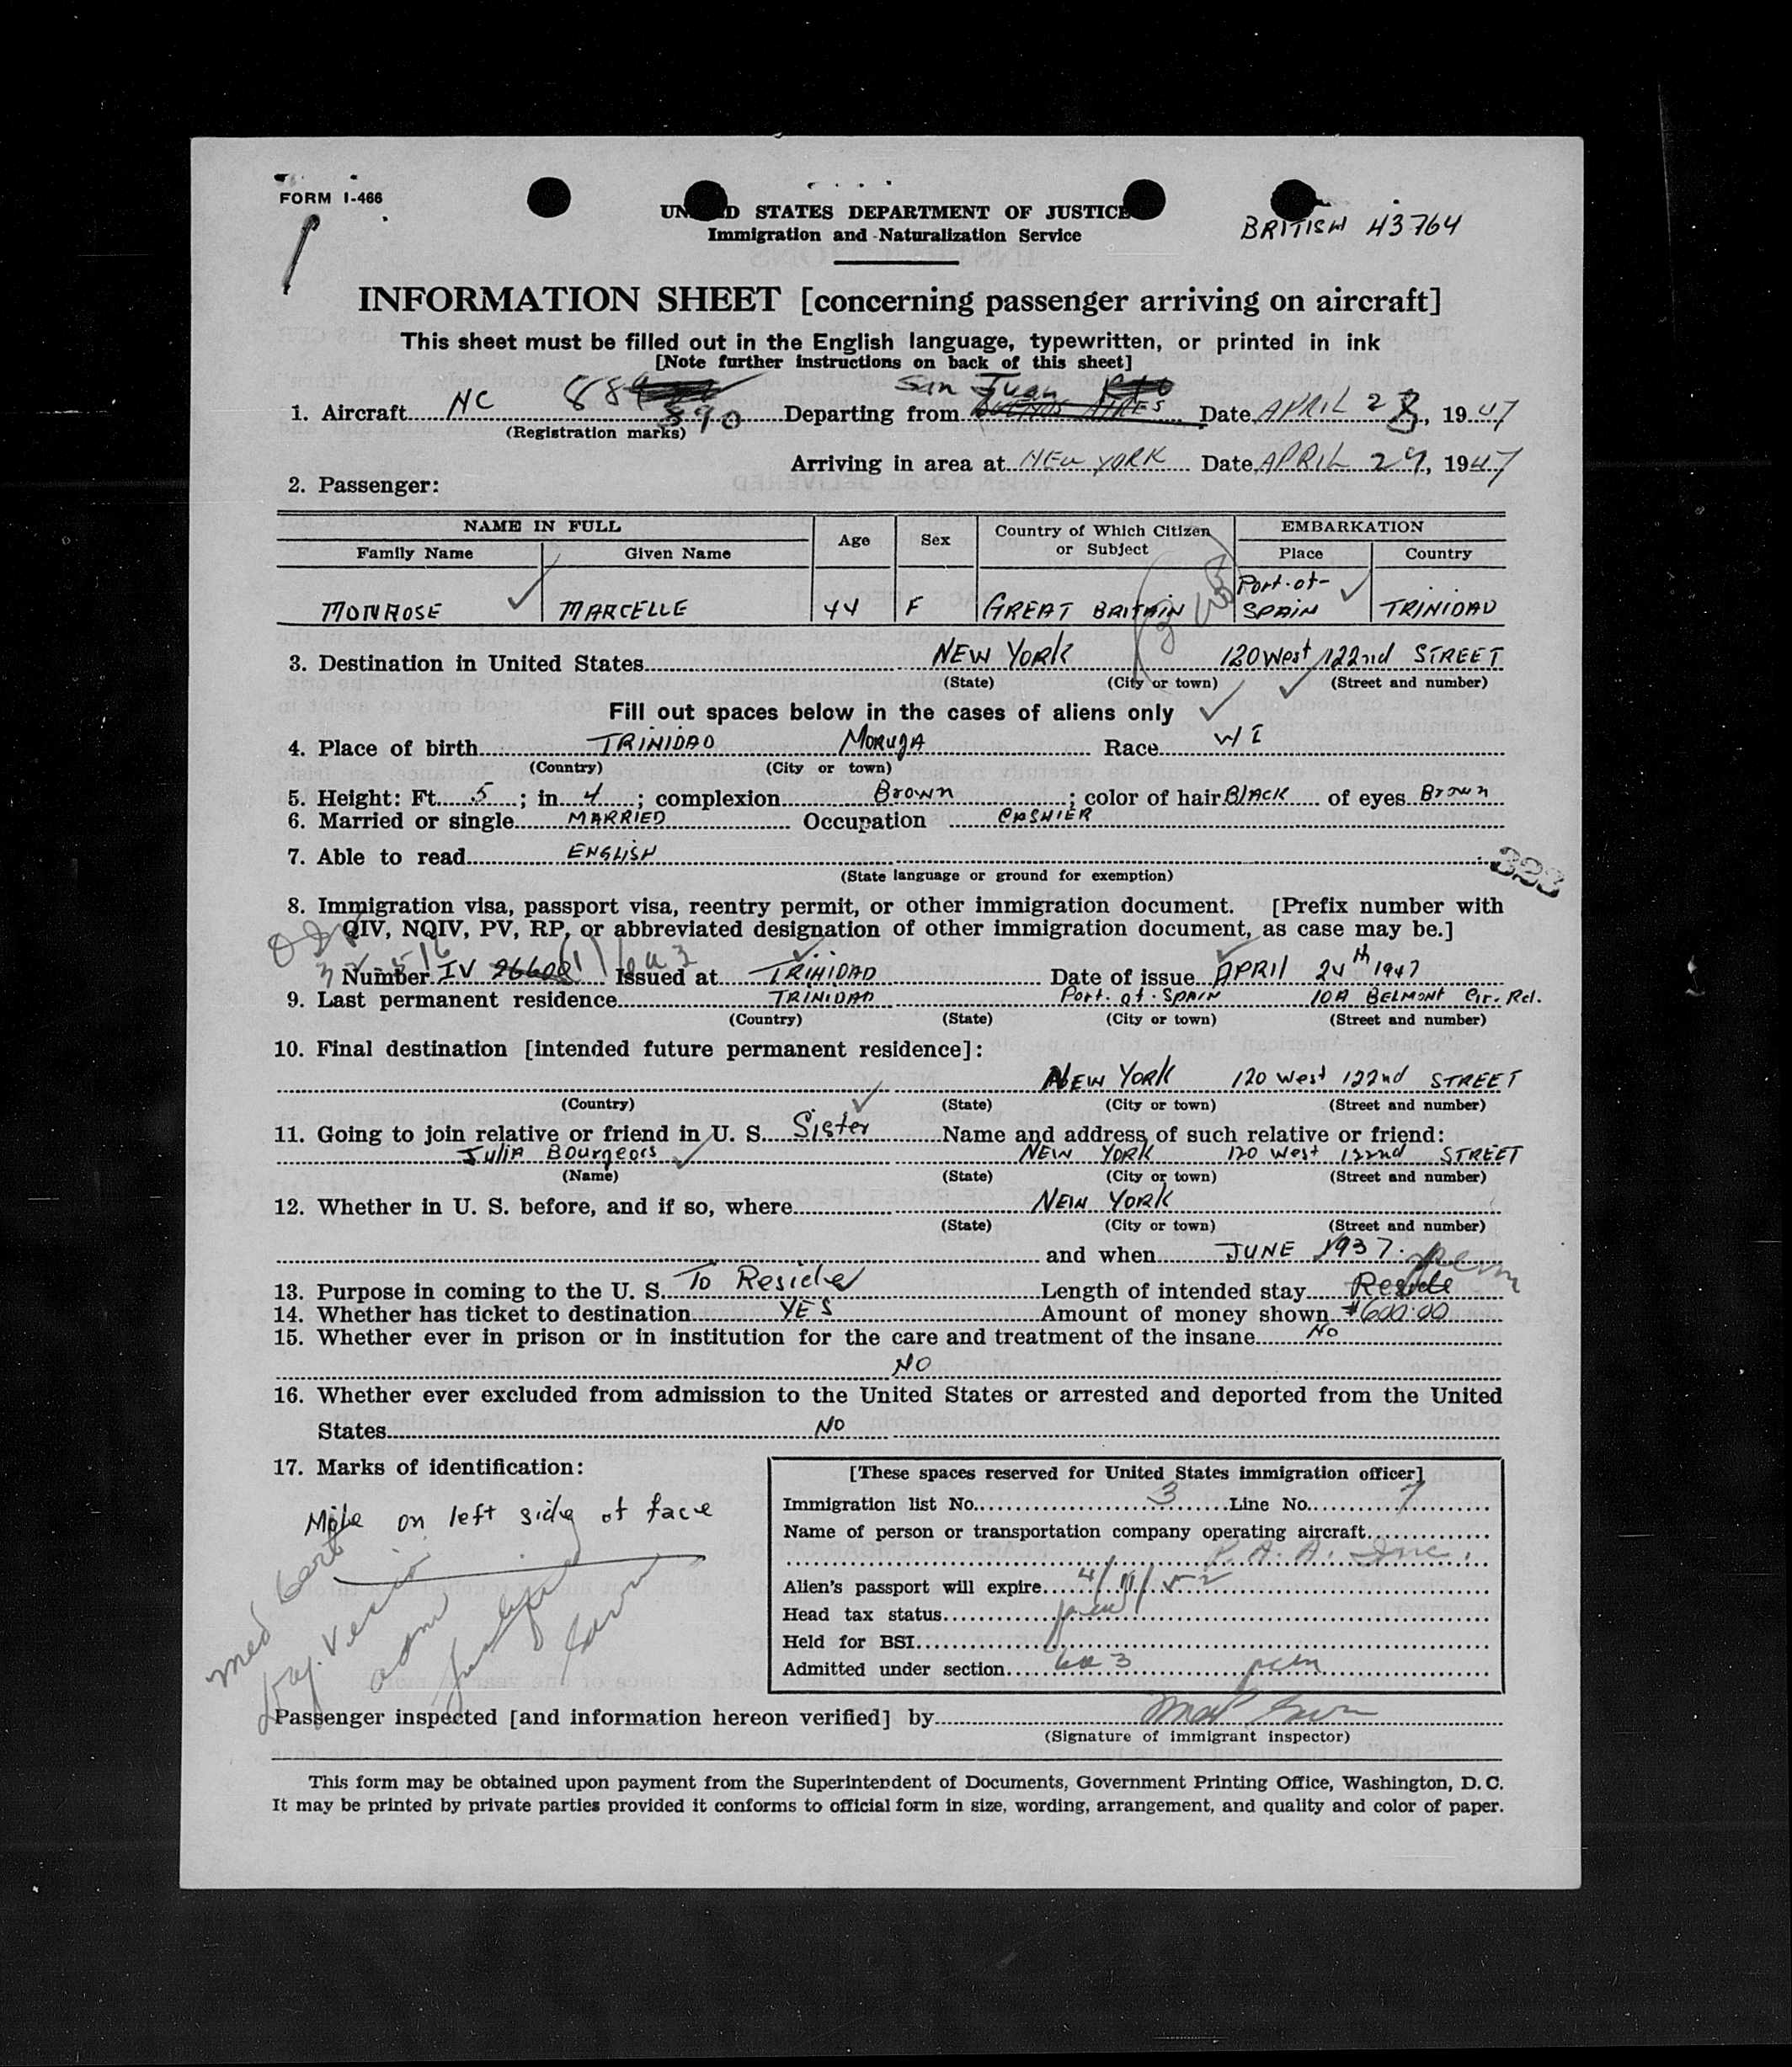 FORM I-466
UNITED STATES DEPARTMENT OF JUSTICE
Immigration and Naturalization Service
BRITISH 43764
INFORMATION SHEET [concerning passenger arriving on aircraft]
This sheet must be filled out in the English language, typewritten, or printed in ink
[Note further instructions on back of this sheet]
San Juan
1. Aircraft NC 889 Departing from BUENOS AIRES Date APRIL 28, 1947
(Registration marks) 890
Arriving in area at NEW YORK Date APRIL 29, 1947
2. Passenger:
NAME IN FULL Age Sex Country of Which Citizen or Subject EMBARKATION
Family Name Given Name Place Country
MONROSE MARCELLE 44 F GREAT BRITAIN Port-of-SPAIN TRINIDAD
3. Destination in United States NEW YORK 120 West 122nd STREET
(State) (City or town) (Street and number)
Fill out spaces below in the cases of aliens only
4. Place of birth TRINIDAD MORUGA Race W I
(Country) (City or town)
5. Height: Ft. 5; in 4; complexion Brown; color of hair BLACK of eyes Brown
6. Married or single MARRIED Occupation CASHIER
7. Able to read ENGLISH
(State language or ground for exemption)
323
8. Immigration visa, passport visa, reentry permit, or other immigration document. [Prefix number with
QIV, NQIV, PV, RP, or abbreviated designation of other immigration document, as case may be.]
Number IV Issued at TRINIDAD Date of issue APRIL 24th 1947
9. Last permanent residence TRINIDAD Port-of-SPAIN 10A BELMONT Cir. Rd.
(Country) (State) (City or town) (Street and number)
10. Final destination [intended future permanent residence]:
NEW YORK 120 West 122nd STREET
(Country) (State) (City or town) (Street and number)
11. Going to join relative or friend in U. S. Sister Name and address of such relative or friend:
JULIA Bourgeois NEW YORK 120 West 122nd STREET
(Name) (State) (City or town) (Street and number)
12. Whether in U. S. before, and if so, where NEW YORK
(State) (City or town) (Street and number)
and when JUNE 1937.
13. Purpose in coming to the U. S. To Reside Length of intended stay Reside perm
14. Whether has ticket to destination YES Amount of money shown $600.00
15. Whether ever in prison or in institution for the care and treatment of the insane No
NO
16. Whether ever excluded from admission to the United States or arrested and deported from the United
States NO
17. Marks of identification:
Mole on left side of face
med cert
[These spaces reserved for United States immigration officer]
Immigration list No. 3 Line No. 7
Name of person or transportation company operating aircraft
P. A. A. Inc.
Alien's passport will expire 4/11/52
Head tax status
Held for BSI
Admitted under section 6a3 perm
Passenger inspected [and information hereon verified] by
(Signature of immigrant inspector)
This form may be obtained upon payment from the Superintendent of Documents, Government Printing Office, Washington, D. C.
It may be printed by private parties provided it conforms to official form in size, wording, arrangement, and quality and color of paper.